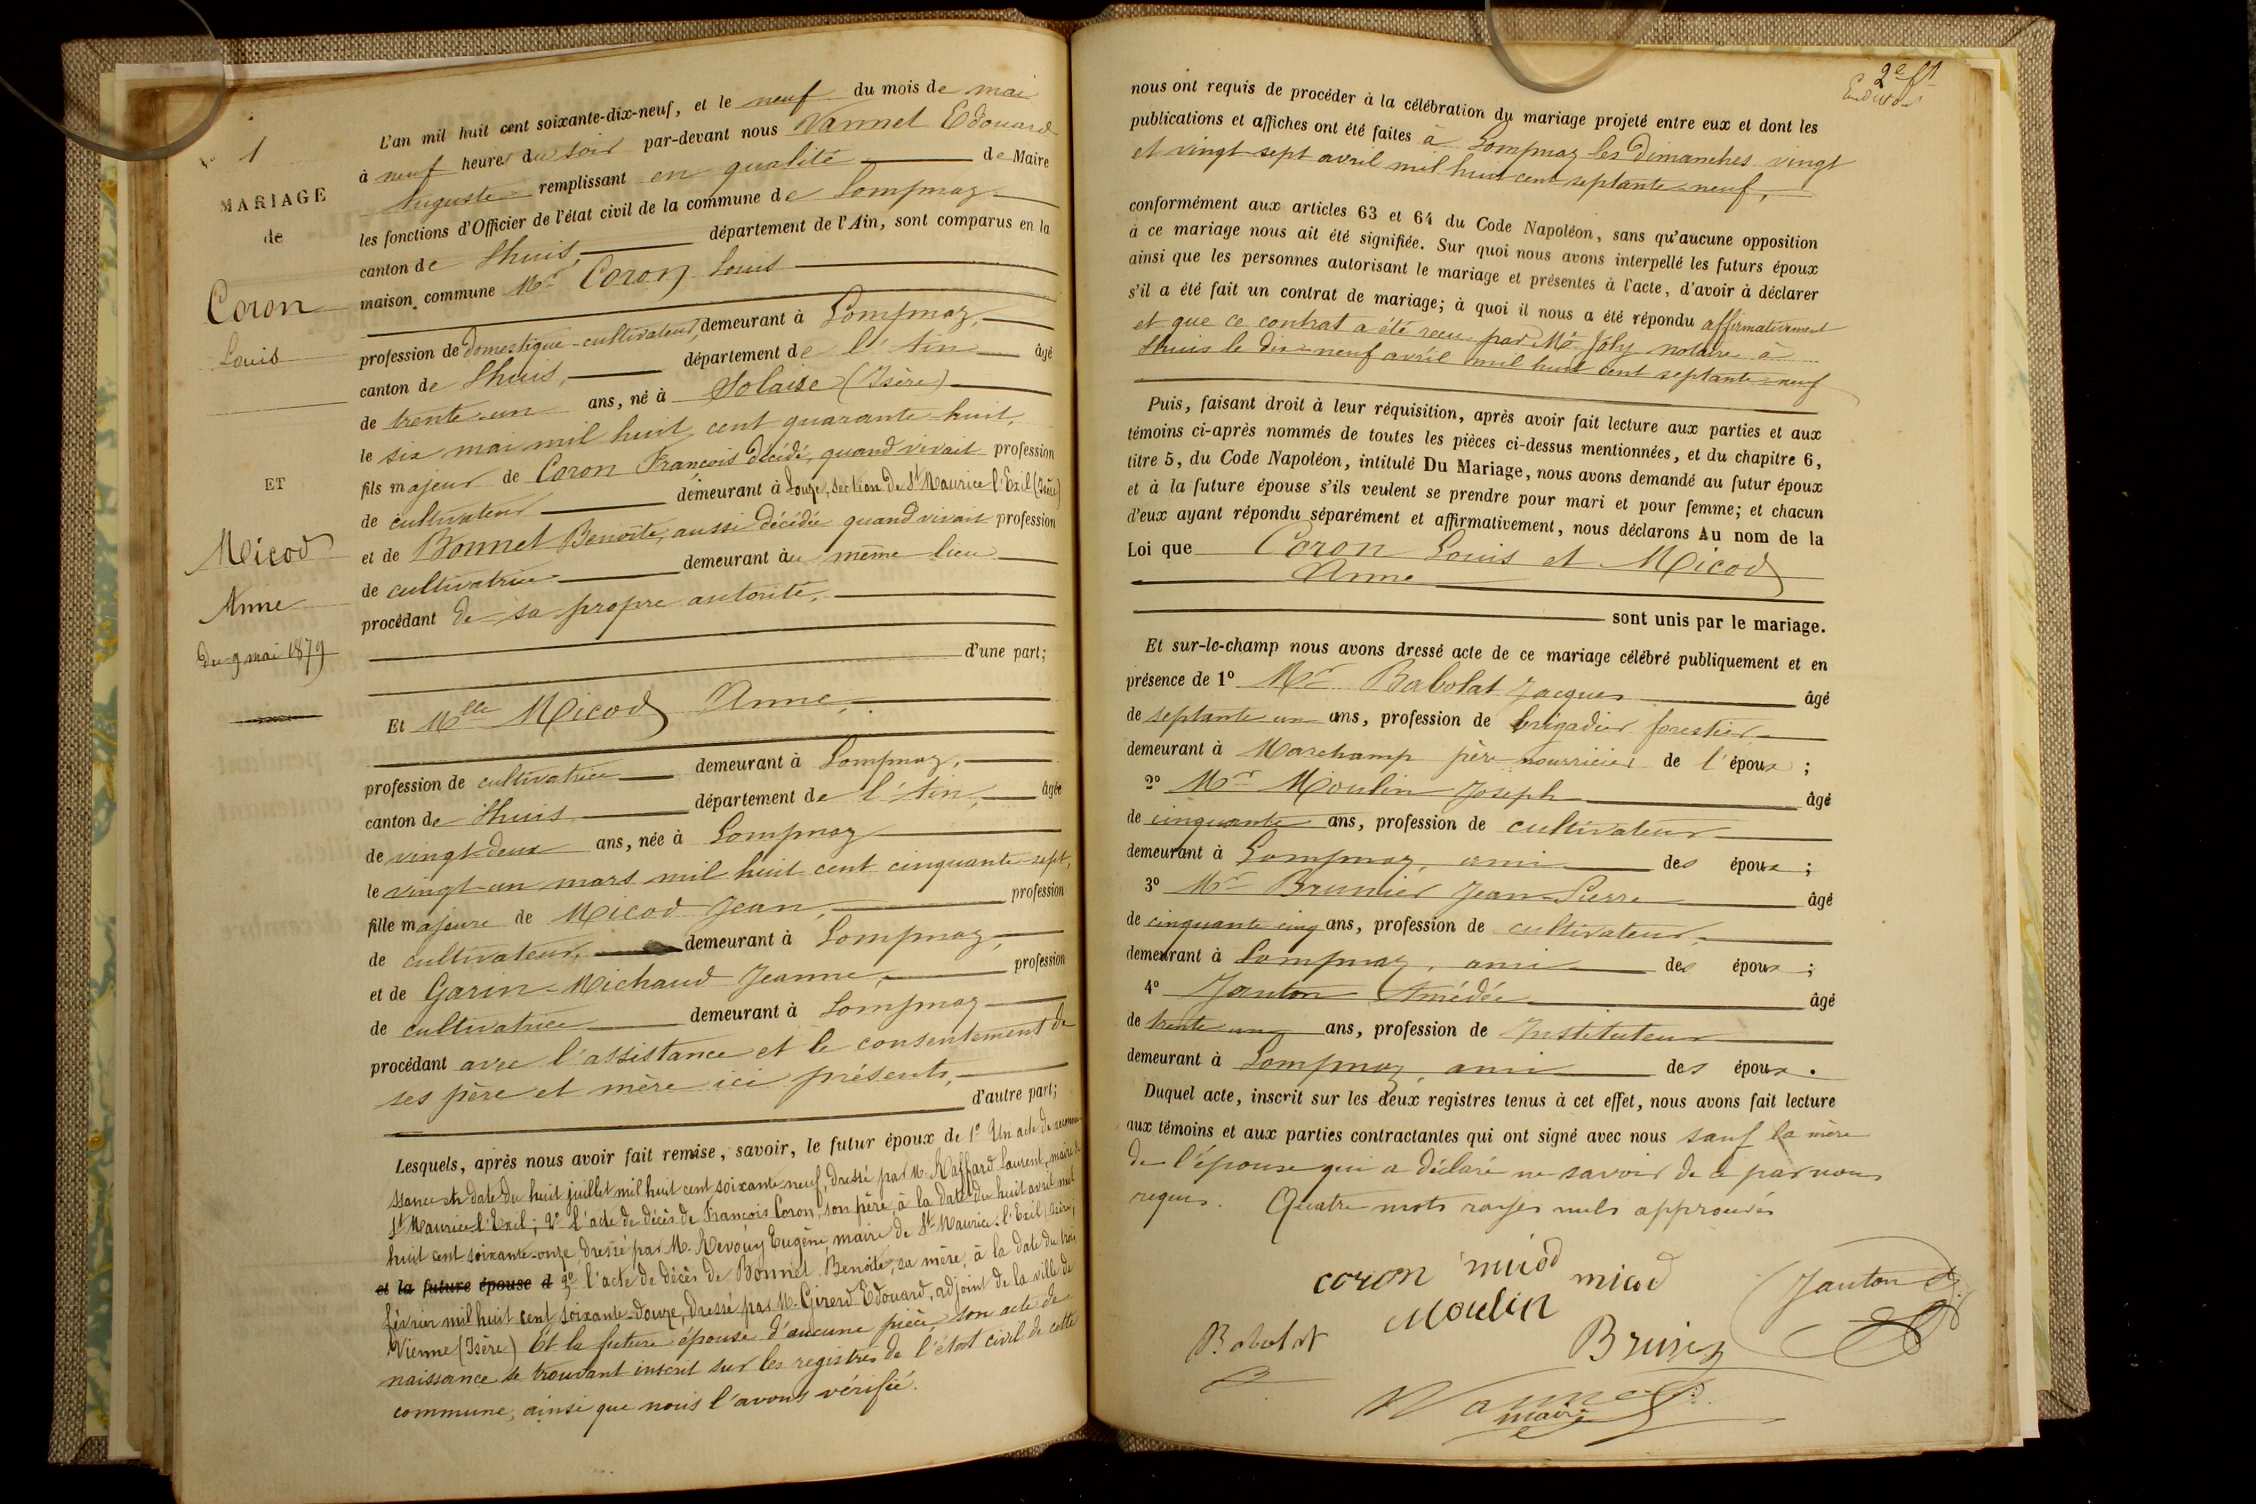 1
MARIAGE
de
Coron
Louis
ET
Micod
Anne
du 9 mai 1879
L'an mil huit cent soixante-dix-neuf, et le neuf du mois de mai
à neuf heures du soir par-devant nous Vannet Edouard
Auguste remplissant en qualité de Maire
les fonctions d'Officier de l'état civil de la commune de Lompnaz
canton de Lhuis, département de l'Ain, sont comparus en la
maison commune Mr Coron Louis
profession de domestique-cultivateur, demeurant à Lompnaz,
canton de Lhuis, département de l'Ain âgé
de trente-un ans, né à Solaise (Isère)
le six mai mil huit cent quarante-huit,
fils majeur de Coron François décédé, quand vivait profession
de cultivateur demeurant à Louze, section de St Maurice l'Exil (Isère)
et de Bonnet Benoîte, aussi décédée quand vivait profession
de cultivatrice demeurant au même lieu
procédant de sa propre autorité,
d'une part;
Et Mlle Micod Anne,
profession de cultivatrice demeurant à Lompnaz,
canton de Lhuis département de l'Ain, âgée
de vingt-deux ans, née à Lompnaz
le vingt-un mars mil huit cent cinquante-sept,
fille majeure de Micod Jean, profession
de cultivateur, demeurant à Lompnaz,
et de Garin-Michaud Jeanne, profession
de cultivatrice demeurant à Lompnaz
procédant avec l'assistance et le consentement de
ses père et mère ici présents,
d'autre part;
Lesquels, après nous avoir fait remise, savoir, le futur époux de 1° Un acte de reconnai-
ssance en date du huit juillet mil huit cent soixante neuf, dressé par M. Raffard Laurent, maire de
St Maurice l'Exil; 2° l'acte de décès de François Coron, son père, à la date du huit avril mil
huit cent soixante-onze, dressé par M. Revouy Eugène, maire de St Maurice-l'Exil (Isère);
et la future épouse d 3° l'acte de décès de Bonnet Benoîte, sa mère, à la date du trois
février mil huit cent soixante-douze, dressé par M. Girerd Edouard, adjoint de la ville de
Vienne (Isère) Et la future épouse d'aucune pièce, son acte de
naissance se trouvant inscrit sur les registres de l'état civil de cette
commune, ainsi que nous l'avons vérifié.
2e ft
nous ont requis de procéder à la célébration du mariage projeté entre eux et dont les
publications et affiches ont été faites à Lompnaz les dimanches vingt
et vingt-sept avril mil huit cent septante-neuf,
conformément aux articles 63 et 64 du Code Napoléon, sans qu'aucune opposition
à ce mariage nous ait été signifiée. Sur quoi nous avons interpellé les futurs époux
ainsi que les personnes autorisant le mariage et présentes à l'acte, d'avoir à déclarer
s'il a été fait un contrat de mariage; à quoi il nous a été répondu affirmativement
et que ce contrat a été reçu par Me Joly notaire à
Lhuis le dix-neuf avril mil huit cent septante-neuf
Puis, faisant droit à leur réquisition, après avoir fait lecture aux parties et aux
témoins ci-après nommés de toutes les pièces ci-dessus mentionnées, et du chapitre 6,
titre 5, du Code Napoléon, intitulé Du Mariage, nous avons demandé au futur époux
et à la future épouse s'ils veulent se prendre pour mari et pour femme; et chacun
d'eux ayant répondu séparément et affirmativement, nous déclarons Au nom de la
Loi que Coron Louis et Micod
Anne
sont unis par le mariage.
Et sur-le-champ nous avons dressé acte de ce mariage célébré publiquement et en
présence de 1° Mr Babolat Jacques âgé
de septante un ans, profession de brigadier forestier
demeurant à Marchamp père nourricier de l'époux ;
2° Mr Moulin Joseph âgé
de cinquante ans, profession de cultivateur
demeurant à Lompnaz, ami des époux ;
3° Mr Brunier Jean-Pierre âgé
de cinquante cinq ans, profession de cultivateur,
demeurant à Lompnaz, ami des époux ;
4° Janton Amédée âgé
de trente un ans, profession de Instituteur
demeurant à Lompnaz, ami des époux .
Duquel acte, inscrit sur les deux registres tenus à cet effet, nous avons fait lecture
aux témoins et aux parties contractantes qui ont signé avec nous sauf la mère
de l'épouse qui a déclaré ne savoir de ce par nous
requis. Quatre mots rayés nuls approuvés
coron micod micod Janton
Babolat Moulin Brunier
Vannet
maire